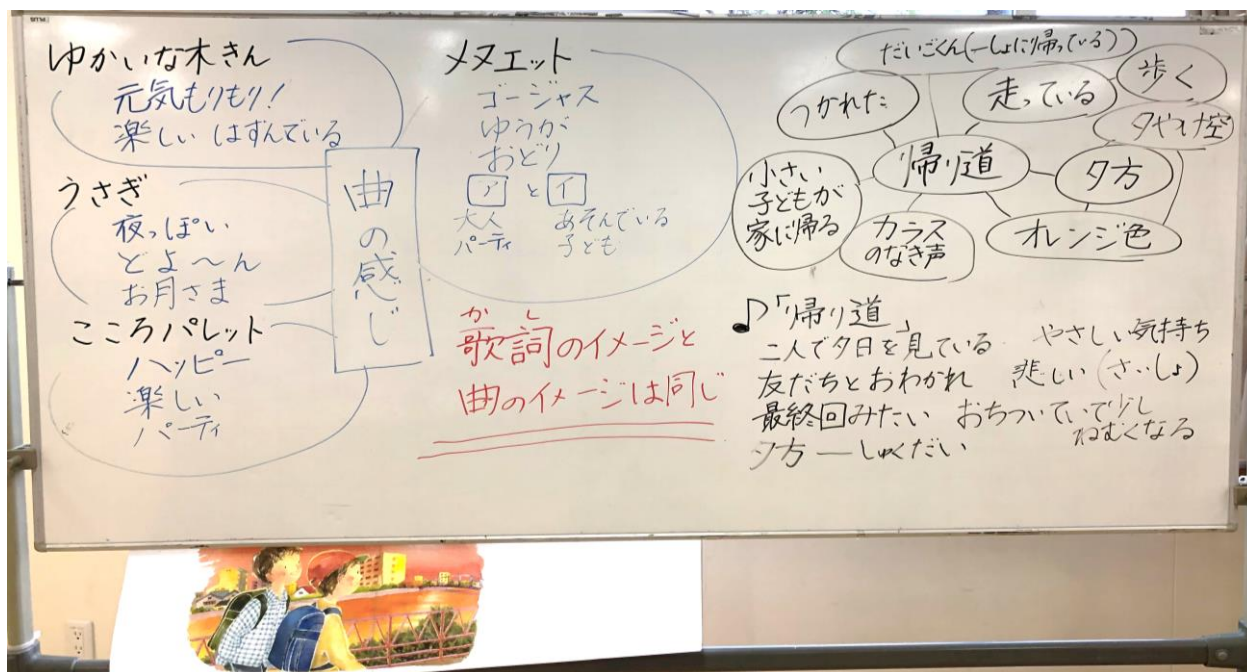 ゆかいな木きん
元気もりもり!
楽しい はずんでいる
うさぎ
夜っぽい
どよ〜ん
お月さま
こころパレット
ハッピー
楽しい
パーティ
曲の感じ
メヌエット
ゴージャス
ゆうが
おどり
ア と イ
大人 あそんでいる
パーティ 子ども
かし
歌詞のイメージと
曲のイメージは同じ
だいごくん(一しょに帰っている)
つかれた
走っている
歩く
夕やけ空
帰り道
夕方
小さい
子どもが
家に帰る
カラス
のなき声
オレンジ色
♪「帰り道」
二人で夕日を見ている やさしい気持ち
友だちとおわかれ 悲しい(さいしょ)
最終回みたい おちついていで少し
ねむくなる
夕方 ― しゅくだい